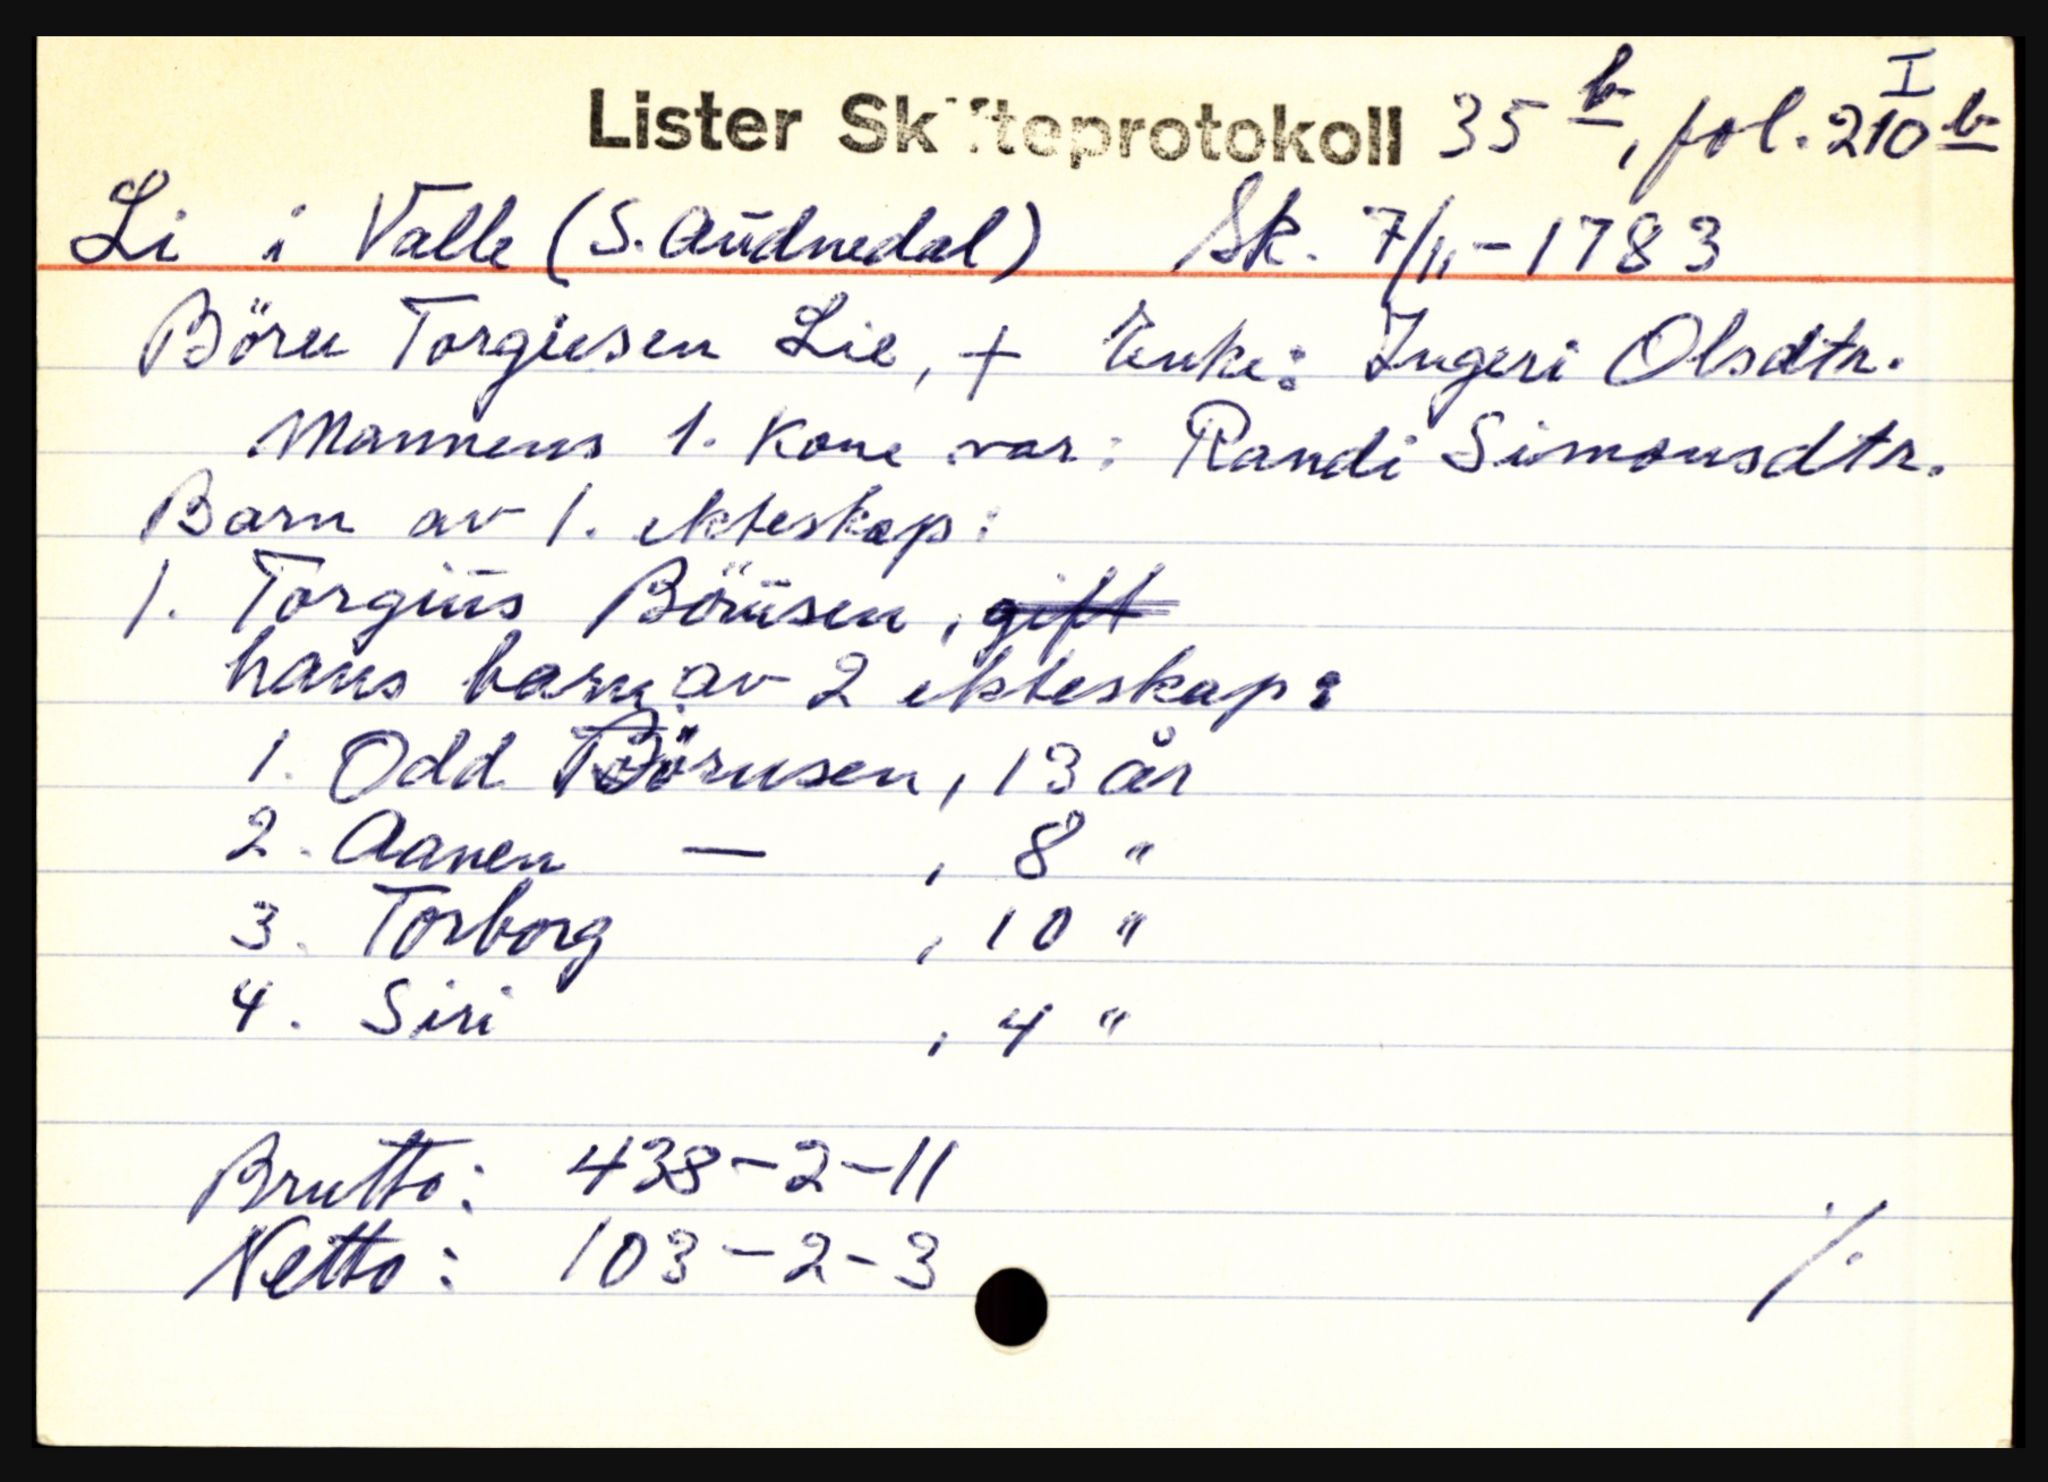 Lister Skifteprotokoll 35 b, fol. 210 b I
Li i Valle (S. Audnedal) Sk. 7/11-1783
Böru Torgiusen Lie, + Enke: Ingeri Olsdtr.
Mannens 1. kone var: Randi Simonsdtr.
Barn av 1. ekteskap:
1. Torgius Börusen, gift
hans barn av 2 ekteskap:
1. Odd Börusen, 13 år
2. Aanen — , 8 "
3. Torborg , 10 "
4. Siri , 4 "
Brutto: 438-2-11
Netto: 103-2-3
/.